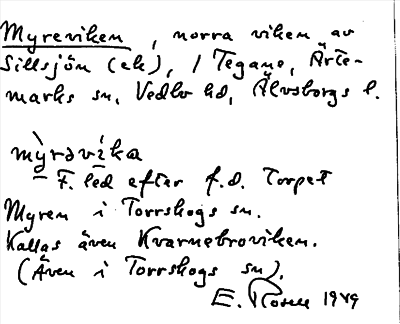 Myreviken, norra viken av
Sillsjön (ek), / Tegane, Ärte-
marks sn, Vedbo hd, Älvsborgs l.
mỳrəvíka
F. led efter f.d. Torpet
Myren i Torrskogs sn.
Kallas även Kvarnebroviken.
(Även i Torrskogs sn).
E. Rosell 1949